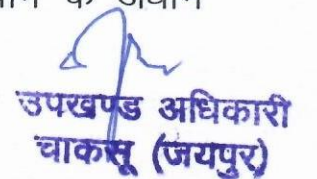 के अधीन
उपखण्ड अधिकारी
चाकसू (जयपुर)